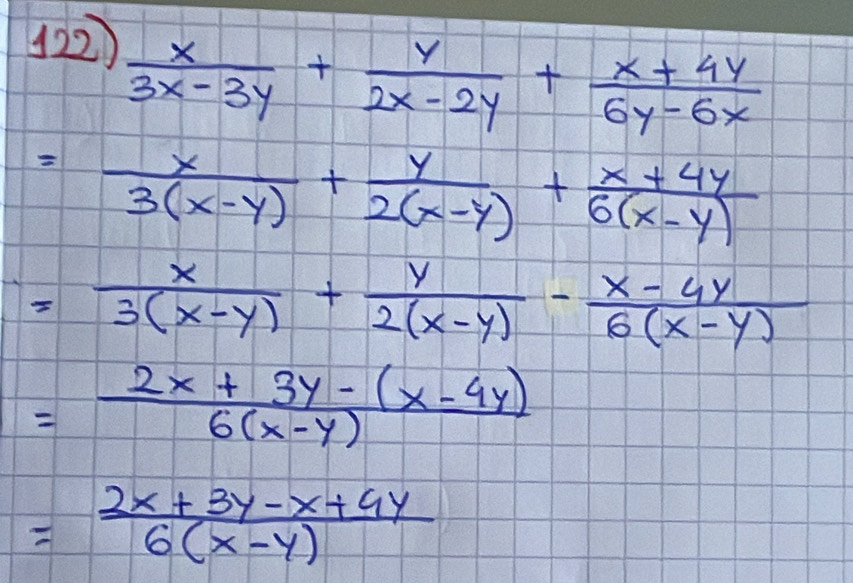 122) x/(3x-3y) + y/(2x-2y) + (x+4y)/(6y-6x)
= x/(3(x-y)) + y/(2(x-y)) + (x+4y)/(6(x-y))
= x/(3(x-y)) + y/(2(x-y)) - (x-4y)/(6(x-y))
= (2x+3y-(x-4y))/(6(x-y))
= (2x+3y-x+4y)/(6(x-y))